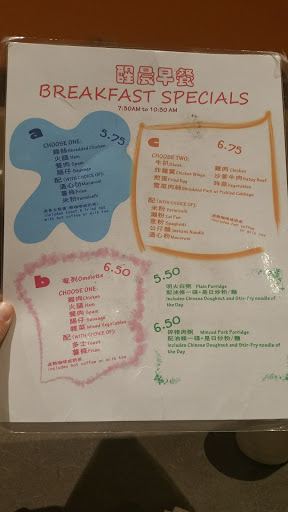 醒晨早餐
BREAKFAST SPECIALS
7:30AM to 10:30 AM
a 5.75
CHOOSE ONE:
雞絲Shredded Chicken
火腿Ham
餐肉Spam
腸仔Sausage
配(WITH CHOICE OF):
通心粉Macaroni
薯條Fries
米粉Vermicelli
c 6.75
CHOOSE TWO:
牛扒Steak
雞肉Chicken
炸雞翼Chicken Wings
沙爹牛肉Satay Beef
煎蛋Fried Egg
時蔬Vegetables
雪菜肉絲Shredded Pork w/ Pickled Cabbage
配(WITH CHOICE OF):
米粉Vermicelli
意粉Spaghetti
公仔麵Instant Noodle
通心粉Macaroni
b 奄列Omelette
6.50
CHOOSE ONE:
雞肉Chicken
火腿Ham
餐肉Spam
腸仔Sausage
雜菜Mixed Vegetables
配(WITH CHOICE OF):
多士Toast
薯條Fries
Includes hot coffee or milk tea
5.50
明火白粥 Plain Porridge
配油條一碟+是日炒粉/麵
Includes Chinese Doughnut and Stir-Fry noodle of the Day
6.50
Minced Pork Porridge
配油條一碟+是日炒粉/麵
Includes Chinese Doughnut and Stir-Fry noodle of the Day